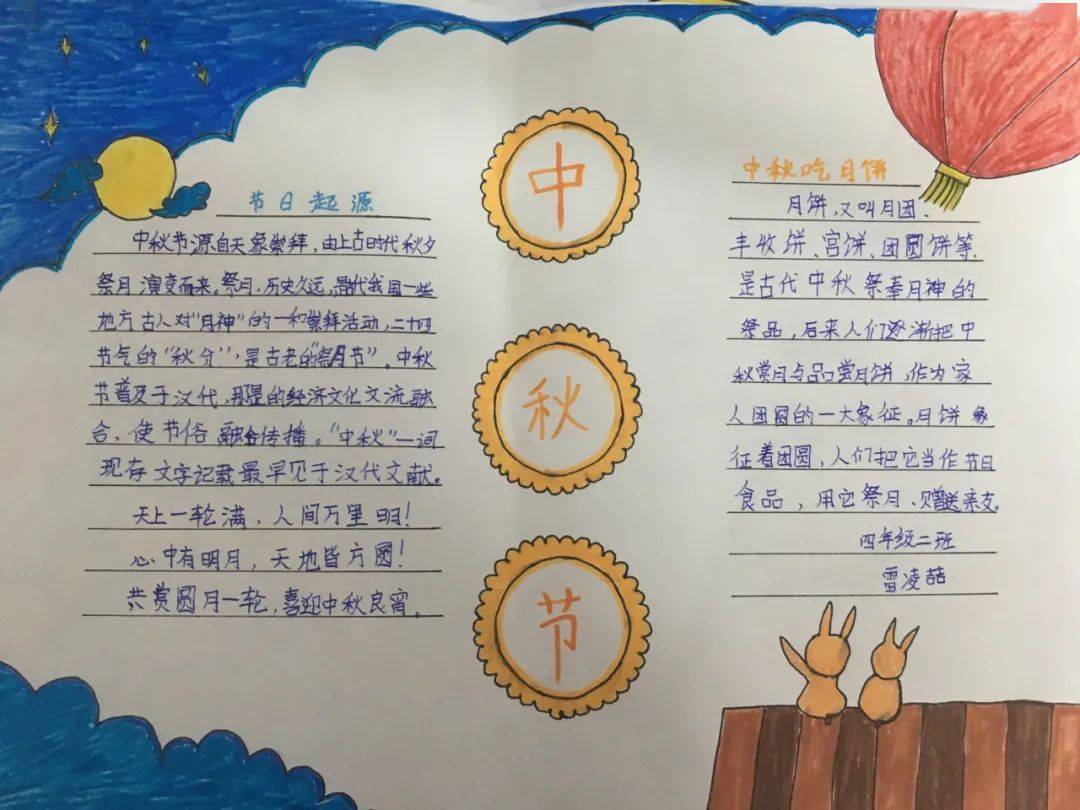 节日起源
中秋节源自天象崇拜，由上古时代秋夕
祭月演变而来。祭月，历史久远，是古代我国一些
地方古人对“月神”的一种崇拜活动，二十四
节气的“秋分”，是古老的“祭月节”。中秋
节普及于汉代，那是的经济文化交流融
合、使节俗融合传播。“中秋”一词
现存文字记载最早见于汉代文献。
天上一轮满，人间万里明！
心中有明月，天地皆方圆！
共赏圆月一轮，喜迎中秋良宵。
中
秋
节
中秋吃月饼
月饼，又叫月团、
丰收饼、宫饼、团圆饼等，
是古代中秋祭奉月神的
祭品，后来人们逐渐把中
秋赏月与品尝月饼，作为家
人团圆的一大象征。月饼象
征着团圆，人们把它当作节日
食品，用它祭月、赠送亲友。
四年级二班
雷凌喆